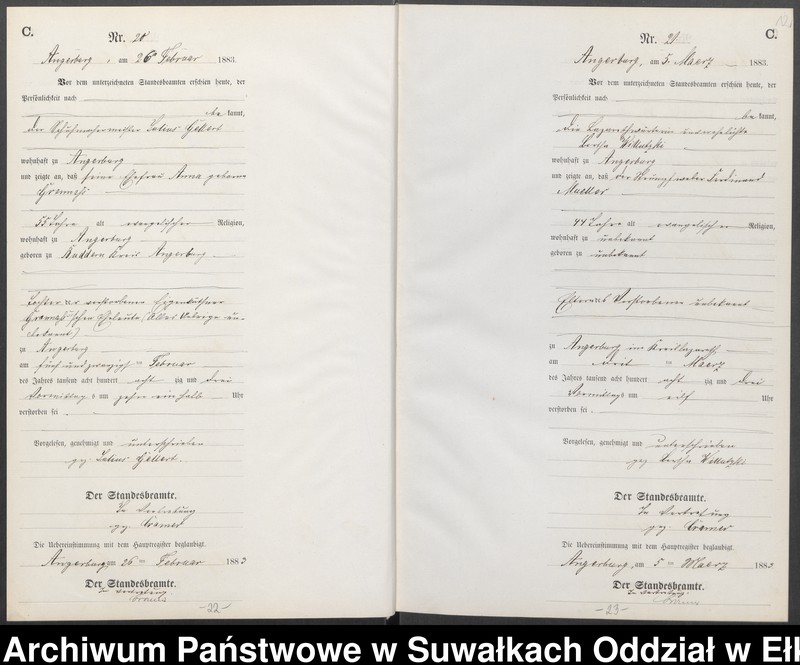 C.
Nr. 20
Angerburg, am 26ten Februar 1883.
Vor dem unterzeichneten Standesbeamten erschien heute, der
Persönlichkeit nach
be kannt,
der Schuhmachermeister Julius Gellert
wohnhaft zu Angerburg
und zeigte an, daß seine Ehefrau Anna geborne
55 Jahre alt evangelischer Religion,
wohnhaft zu Angerburg
geboren zu Kreis Angerburg
Tochter der verstorbenen
Eheleute (Alles Uebrige un-
bekannt)
zu Angerburg
am fünf und zwanzigsten Februar
des Jahres tausend acht hundert acht zig und drei
Vormittags um zehn ein halb Uhr
verstorben sei.
Vorgelesen, genehmigt und unterschrieben
gez. Julius Gellert.
Der Standesbeamte.
In Vertretung
gez. Cramer
Die Uebereinstimmung mit dem Hauptregister beglaubigt.
Angerburg, am 26ten Februar 1883
Der Standesbeamte.
In Vertretung.
Cramer
-22-
C.
Nr. 21
Angerburg, am 5. Maerz 1883.
Vor dem unterzeichneten Standesbeamten erschien heute, der
Persönlichkeit nach
be kannt,
die Lazarethwärterin verehelichte
Bertha Willutzki
wohnhaft zu Angerburg
und zeigte an, daß der Strumpfweber Ferdinand
Mueller
44 Jahre alt evangelischer Religion,
wohnhaft zu unbekannt
geboren zu unbekannt
Eltern des Verstorbenen unbekannt
zu Angerburg im Kreislazareth
am drei ten Maerz
des Jahres tausend acht hundert acht zig und drei
Vormittags um elf Uhr
verstorben sei.
Vorgelesen, genehmigt und unterschrieben
gez. Bertha Willutzki
Der Standesbeamte.
In Vertretung
gez. Cramer
Die Uebereinstimmung mit dem Hauptregister beglaubigt.
Angerburg, am 5ten Maerz 1883
Der Standesbeamte.
In Vertretung.
Cramer
-23-
Archiwum Państwowe w Suwałkach Oddział w Ełk